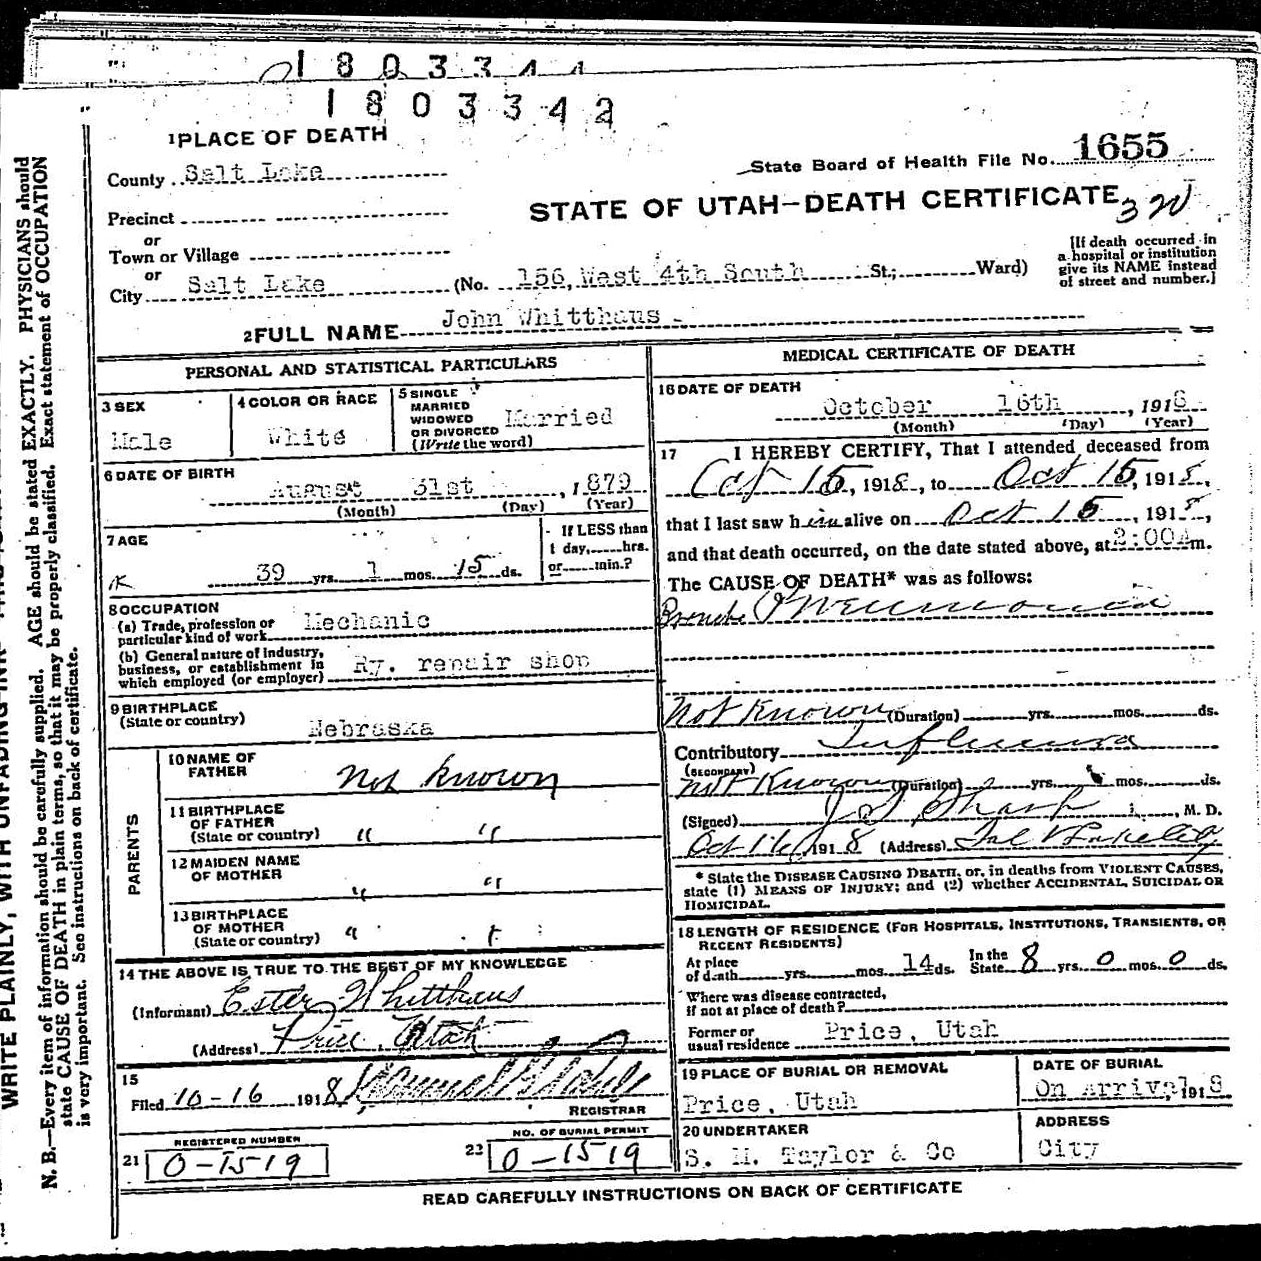 1803344
1803342
1 PLACE OF DEATH
County Salt Lake
State Board of Health File No. 1655
Precinct
STATE OF UTAH—DEATH CERTIFICATE
or
Town or Village
or
City Salt Lake (No. 156, West 4th South St.; Ward)
[If death occurred in
a hospital or institution
give its NAME instead
of street and number.]
2 FULL NAME John Whitthaus
PERSONAL AND STATISTICAL PARTICULARS
3 SEX
Male
4 COLOR OR RACE
White
5 SINGLE
MARRIED
WIDOWED
OR DIVORCED
(Write the word)
Married
6 DATE OF BIRTH
August 31st, 1879
(Month) (Day) (Year)
7 AGE
39 yrs. 1 mos. 15 ds.
If LESS than
1 day, hrs.
or min.?
8 OCCUPATION
(a) Trade, profession or
particular kind of work Mechanic
(b) General nature of industry,
business, or establishment in
which employed (or employer) Ry. repair shop
9 BIRTHPLACE
(State or country) Nebraska
PARENTS
10 NAME OF
FATHER Not known
11 BIRTHPLACE
OF FATHER
(State or country) " "
12 MAIDEN NAME
OF MOTHER " "
13 BIRTHPLACE
OF MOTHER
(State or country) " "
14 THE ABOVE IS TRUE TO THE BEST OF MY KNOWLEDGE
(Informant) Ester Whitthaus
(Address) Price, Utah
15
Filed 10-16 1918
REGISTRAR
REGISTERED NUMBER
21 0-1519
NO. OF BURIAL PERMIT
22 0-1519
MEDICAL CERTIFICATE OF DEATH
16 DATE OF DEATH
October 16th, 1918
(Month) (Day) (Year)
17 I HEREBY CERTIFY, That I attended deceased from
Oct 15, 1918, to Oct 15, 1918,
that I last saw him alive on Oct 15, 1918,
and that death occurred, on the date stated above, at 2:00A m.
The CAUSE OF DEATH* was as follows:
Broncho Pneumonia
Not Known (Duration) yrs. mos. ds.
Contributory Influenza
(SECONDARY)
Not Known (Duration) yrs. mos. ds.
(Signed) J S Sharp, M. D.
Oct 16 1918 (Address) Sal Lake City
* State the DISEASE CAUSING DEATH, or, in deaths from VIOLENT CAUSES,
state (1) MEANS OF INJURY; and (2) whether ACCIDENTAL, SUICIDAL OR
HOMICIDAL.
18 LENGTH OF RESIDENCE (FOR HOSPITALS, INSTITUTIONS, TRANSIENTS, OR
RECENT RESIDENTS)
At place
of death yrs. mos. 14 ds.
In the
State 8 yrs. 0 mos. 0 ds.
Where was disease contracted,
if not at place of death?
Former or
usual residence Price, Utah
19 PLACE OF BURIAL OR REMOVAL
Price, Utah
DATE OF BURIAL
On Arrival, 1918
20 UNDERTAKER
S. M. Taylor & Co
ADDRESS
City
READ CAREFULLY INSTRUCTIONS ON BACK OF CERTIFICATE
N. B.—Every item of information should be carefully supplied. AGE should be stated EXACTLY. PHYSICIANS should
state CAUSE OF DEATH in plain terms, so that it may be properly classified. Exact statement of OCCUPATION
is very important. See instructions on back of certificate.
WRITE PLAINLY, WITH UNFADING INK